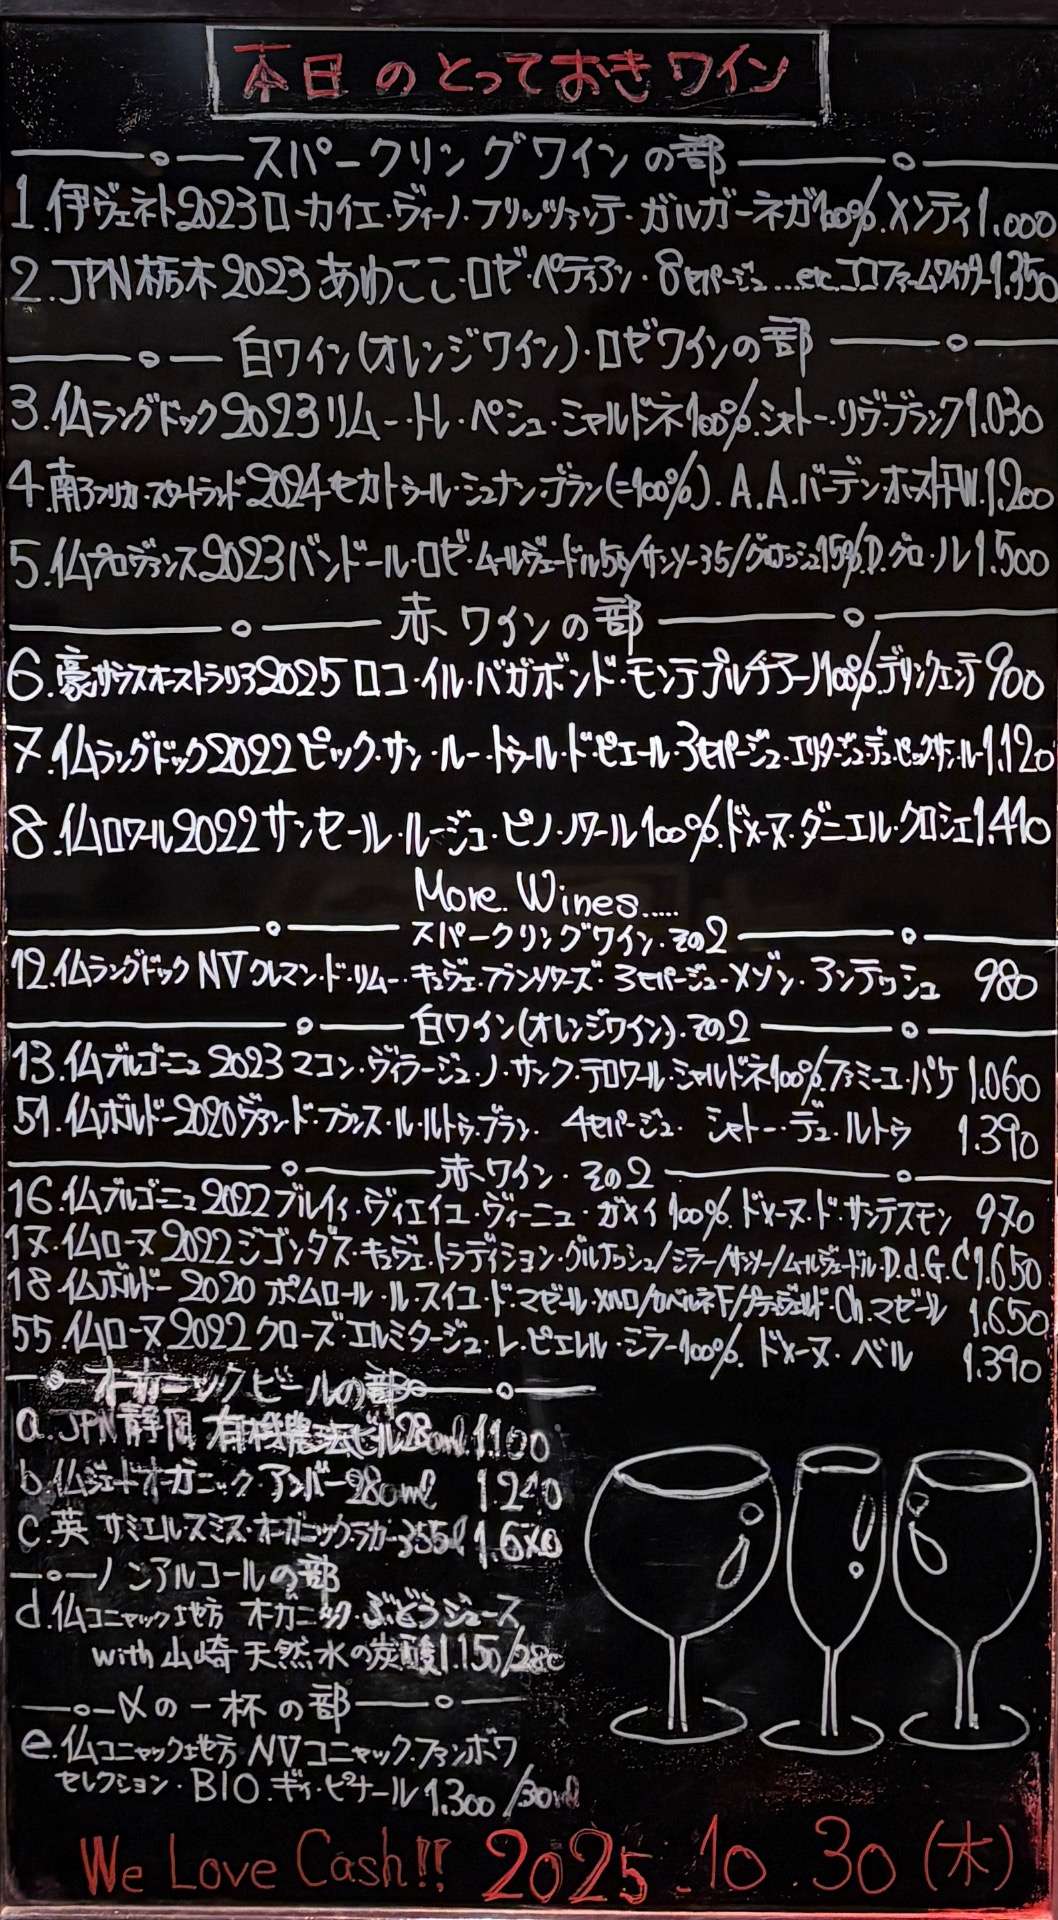 本日のとっておきワイン
スパークリングワインの部
1.伊ヴェネト2023ロ・カイエ・ヴィーノ・フリッツァンテ・ガルガーネガ100%.メンティ1.000
2.JPN栃木2023あわここ・ロゼ・ペティアン・8セパージュ...etc.ココファームワイナリー1.350
白ワイン(オレンジワイン)・ロゼワインの部
3.仏ラングドック2023リムー・トレ・ペシュ・シャルドネ100%.シャトー・リヴ・ブランク1.030
4.南アフリカ・スワートランド2024セカトゥール・シュナン・ブラン(=100%).A.A.バーデンホースト.F.W.1.200
5.仏プロヴァンス2023バンドール・ロゼ・ムールヴェードル50/サンソー35/グルナッシュ15%.D.グロ・ノレ1.500
赤ワインの部
6.豪.サウスオーストラリア2025ロコ・イル・バガボンド・モンテプルチアーノ100%.デリンクエンテ900
7.仏ラングドック2022ピック・サン・ルー・トゥール・ド・ピエール3セパージュ・エリタージュ・デュ・ピック・サン・ルー1.120
8.仏ロワール2022サンセール・ルージュ・ピノ・ノワール100%.ドメーヌ・ダニエル・クロシェ1.410
More Wines.....
スパークリングワイン・その2
12.仏ラングドックNVクレマン・ド・リムー・キュヴェ・フランソワーズ・3セパージュ・メゾン・アンテッシュ 980
白ワイン(オレンジワイン)・その2
13.仏ブルゴーニュ2023マコン・ヴィラージュ・ノ・サンク・テロワール・シャルドネ100%.ファミーユ・パケ1.060
51.仏ボルドー2020ヴァン・ド・フランス・ル・ルトゥ・ブラン. 4セパージュ. シャトー・デュ・ルトゥ 1.390
赤ワイン・その2
16.仏ブルゴーニュ2022ブルイィ・ヴィエイユ・ヴィーニュ・ガメイ100%.ドメーヌ・ド・サンテスモン 970
17.仏ローヌ2022ジゴンダス・キュヴェ・トラディション・グルナッシュ/シラー/サンソー/ムールヴェードル・D.d.G.C1.650
18.仏ボルドー2020ポムロール・ル・スイユ・ド・マゼール.メルロ/カベルネF/プティヴェルド・Ch.マゼール 1.650
55.仏ローヌ2022クローズ・エルミタージュ・レ・ピエレル・シラー100%.ドメーヌ・ベル 1.390
オーガニックビールの部
a.JPN静岡 有機農法ビール280ml 1.100
b.仏ジェード・オーガニック・アンバー280ml 1.240
c.英 サミエルスミス・オーガニックラガー355ml 1.640
ノンアルコールの部
d.仏コニャック地方 オーガニック・ぶどうジュース
with 山崎天然水の炭酸1.150/280
〆の一杯の部
e.仏コニャック地方 NVコニャック・ファンボワ
セレクション・BIO.ギィ・ピナール1.300/30ml
We Love Cash!! 2025.10.30(木)